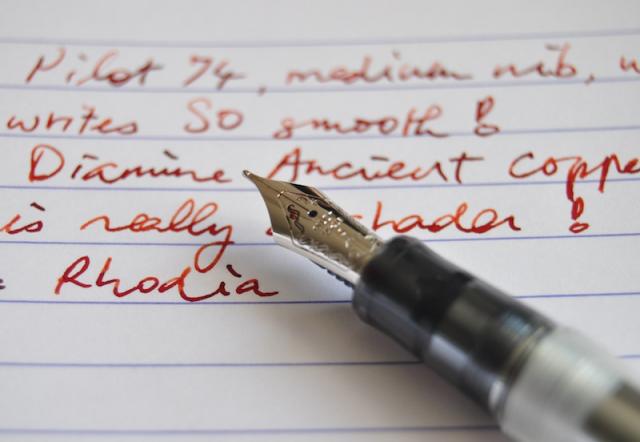 Pilot 74, medium nib,
writes So smooth!
Diamine Ancient Coppe
is really a shader!
Rhodia